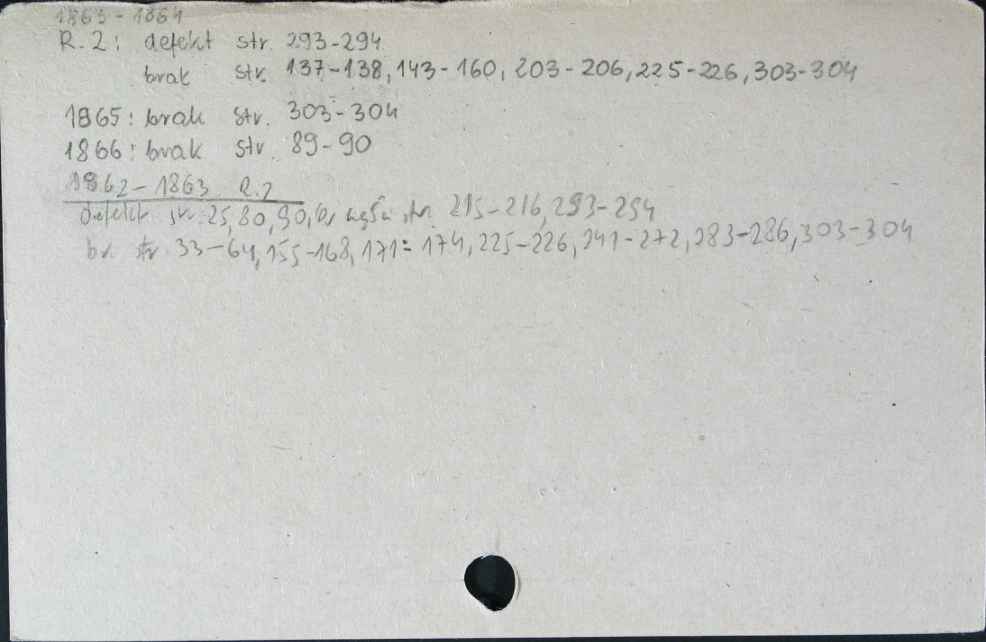 1863-1864
R. 2: defekt str. 293-294
brak str. 137-138, 143-160, 203-206, 225-226, 303-304
1865: brak str. 303-304
1866: brak str. 89-90
1862-1863 R.2
defekt str. 25, 80, 90, str. 215-216, 293-294
br. str. 33-64, 155-168, 171-174, 225-226, 241-272, 283-286, 303-304